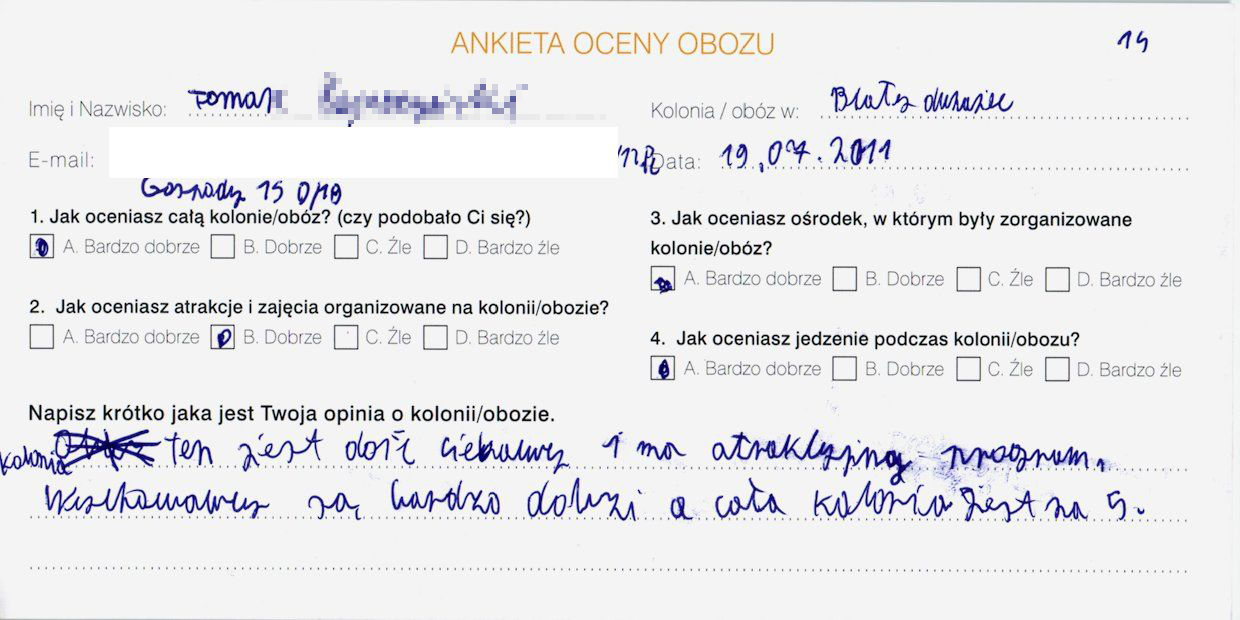 ANKIETA OCENY OBOZU
14
Imię i Nazwisko: Tomasz
Kolonia / obóz w: Biały dunajec
E-mail:
Data: 19.07.2011
Gospody 15 D/19
1. Jak oceniasz całą kolonie/obóz? (czy podobało Ci się?)
A. Bardzo dobrze B. Dobrze C. Źle D. Bardzo źle
2. Jak oceniasz atrakcje i zajęcia organizowane na kolonii/obozie?
A. Bardzo dobrze B. Dobrze C. Źle D. Bardzo źle
3. Jak oceniasz ośrodek, w którym były zorganizowane
kolonie/obóz?
A. Bardzo dobrze B. Dobrze C. Źle D. Bardzo źle
4. Jak oceniasz jedzenie podczas kolonii/obozu?
A. Bardzo dobrze B. Dobrze C. Źle D. Bardzo źle
Napisz krótko jaka jest Twoja opinia o kolonii/obozie.
Kolonia ten jest dość ciekawy i ma atrakcyjny program.
Wychowawcy są bardzo dobrzi a cała kolonia jest na 5.